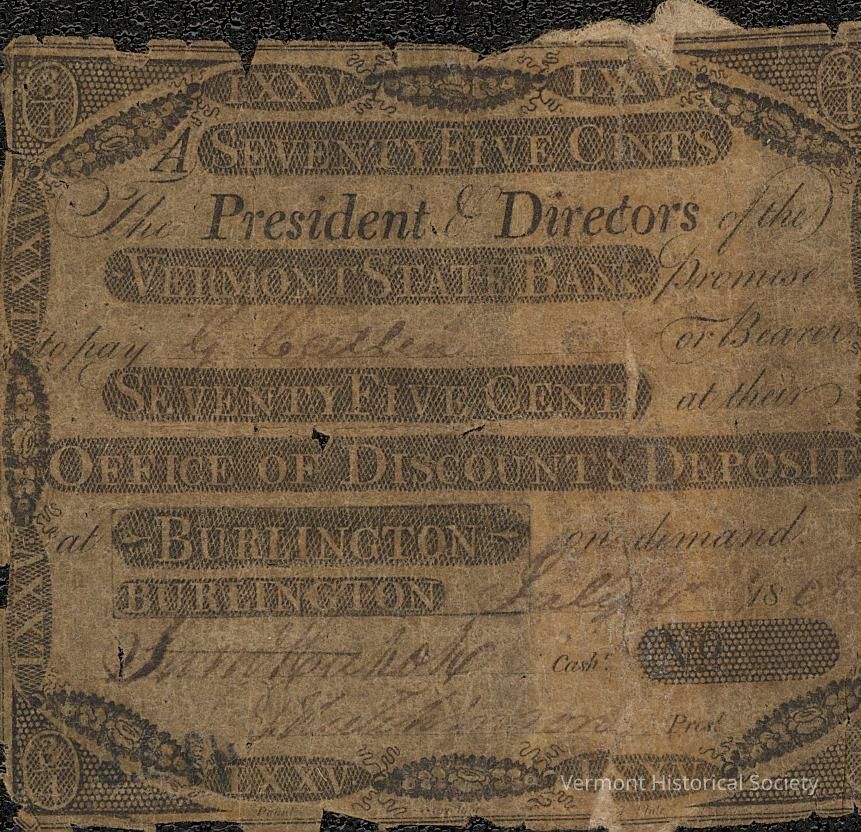 3/4 LXXV LXXV
A SEVENTY FIVE CENTS
The President & Directors of the
VERMONT STATE BANK Promise
to pay G Catlin or Bearer
SEVENTY FIVE CENT at their
OFFICE OF DISCOUNT & DEPOSIT
at BURLINGTON on demand.
BURLINGTON July 180
Cash.r No
Hutchinson Pres.t
LXXV
LXXV
3/4 LXXV
Vermont Historical Society